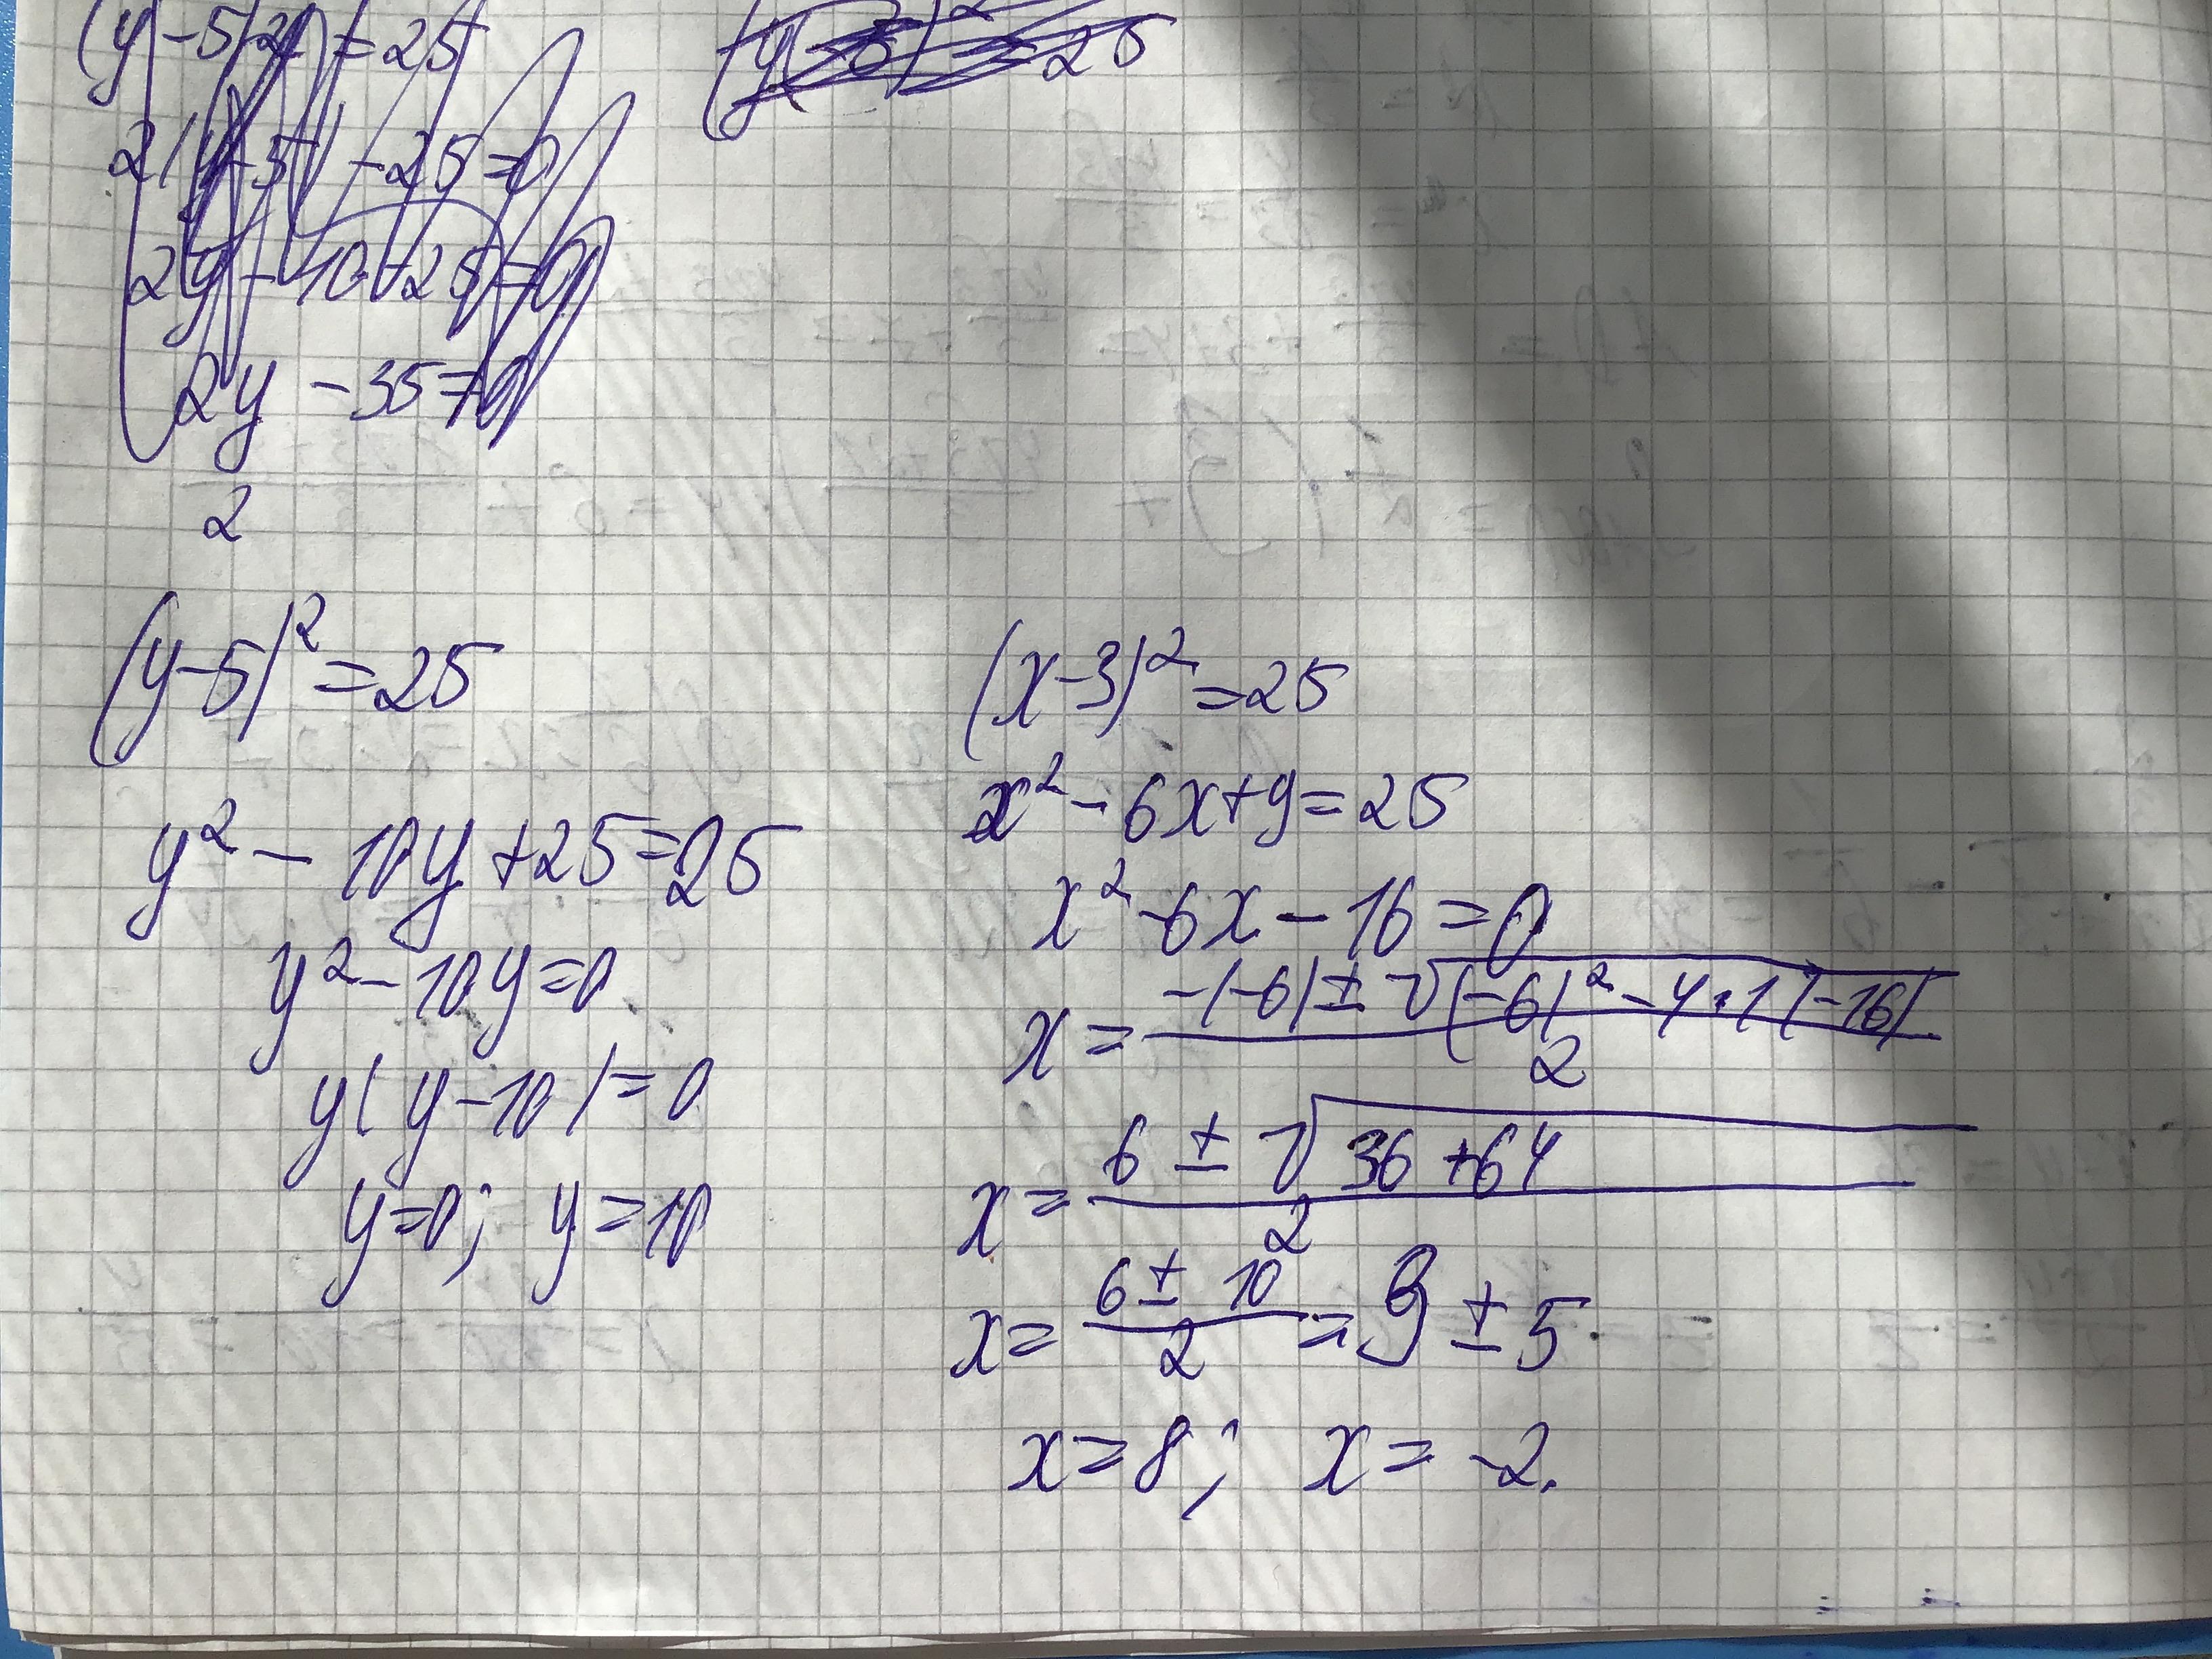 (y-5)2 = 25
(y-5)² = 25
2(y-5) - 25 = 0
2y - 10 - 25 = 0
2y - 35 = 0
2
(y-5)² = 25
y² - 10y + 25 = 25
y² - 10y = 0
y(y-10) = 0
y = 0; y = 10
(x-3)² = 25
x² - 6x + 9 = 25
x² - 6x - 16 = 0
x = (-(-6) ± √((-6)² - 4·1(-16))) / 2
x = (6 ± √(36 + 64)) / 2
x = (6 ± 10) / 2 = 3 ± 5
x = 8; x = -2.